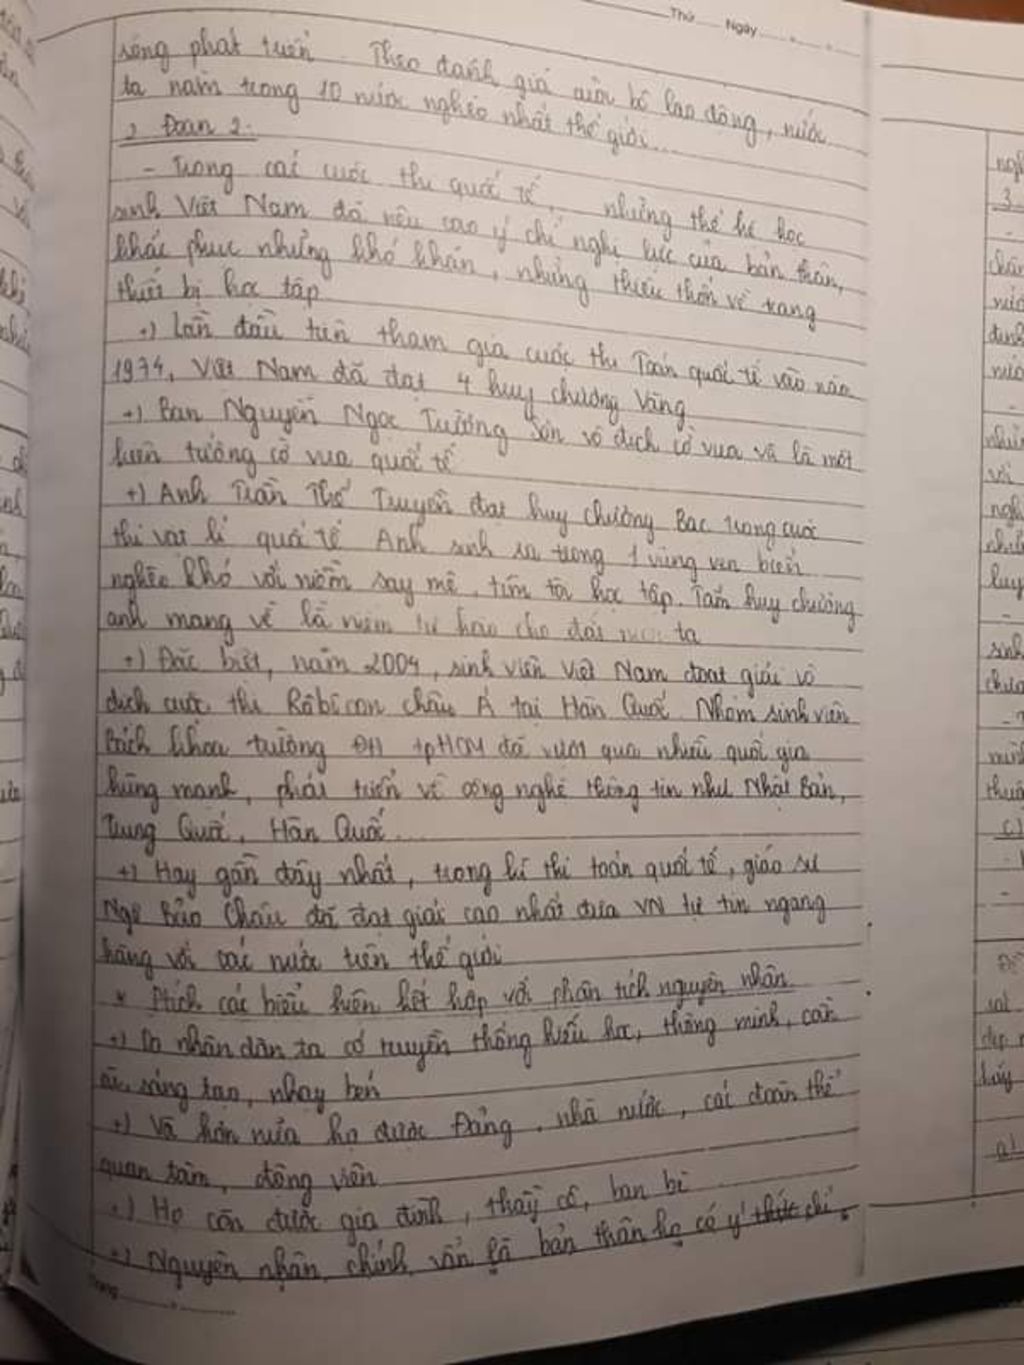 Thứ Ngày
sống phát triển. Theo đánh giá của bộ lao động, nước
ta nằm trong 10 nước nghèo nhất thế giới...
Đoạn 2.
- Trong các cuộc thi quốc tế, những thế hệ học
sinh Việt Nam đã nêu cao ý chí nghị lực của bản thân,
khắc phục những khó khăn, những thiếu thốn về trang
thiết bị học tập
+) Lần đầu tiên tham gia cuộc thi Toán quốc tế vào năm
1974, Việt Nam đã đạt 4 huy chương Vàng
+) Bạn Nguyễn Ngọc Trường Sơn vô địch cờ vua và là một
kiện tướng cờ vua quốc tế
+) Anh Trần Thế Truyền đạt huy chương Bạc trong cuộc
thi vật lí quốc tế Anh sinh ra trong 1 vùng ven biển
nghèo khó với niềm say mê, tìm tòi học tập. Tấm huy chương
anh mang về là niềm tự hào cho đất nước ta
+) Đặc biệt, năm 2004, sinh viên Việt Nam đoạt giải vô
địch cuộc thi Rôbicon châu Á tại Hàn Quốc. Nhóm sinh viên
Bách khoa trường ĐH tpHCM đã vượt qua nhiều quốc gia
hùng mạnh, phát triển về công nghệ thông tin như Nhật Bản,
Trung Quốc, Hàn Quốc...
+) Hay gần đây nhất, trong kì thi toán quốc tế, giáo sư
Ngô Bảo Châu đã đạt giải cao nhất đưa VN tự tin ngang
hàng với các nước trên thế giới
* Ptích các biểu hiện kết hợp với phân tích nguyên nhân
+) Do nhân dân ta có truyền thống hiếu học, thông minh, cần
cù, sáng tạo, nhạy bén
+) Và hơn nữa họ được Đảng, nhà nước, các đoàn thể
quan tâm, động viên
+) Họ còn được gia đình, thầy cô, bạn bè
+) Nguyên nhân chính vẫn là bản thân họ có ý thức chí
Trang